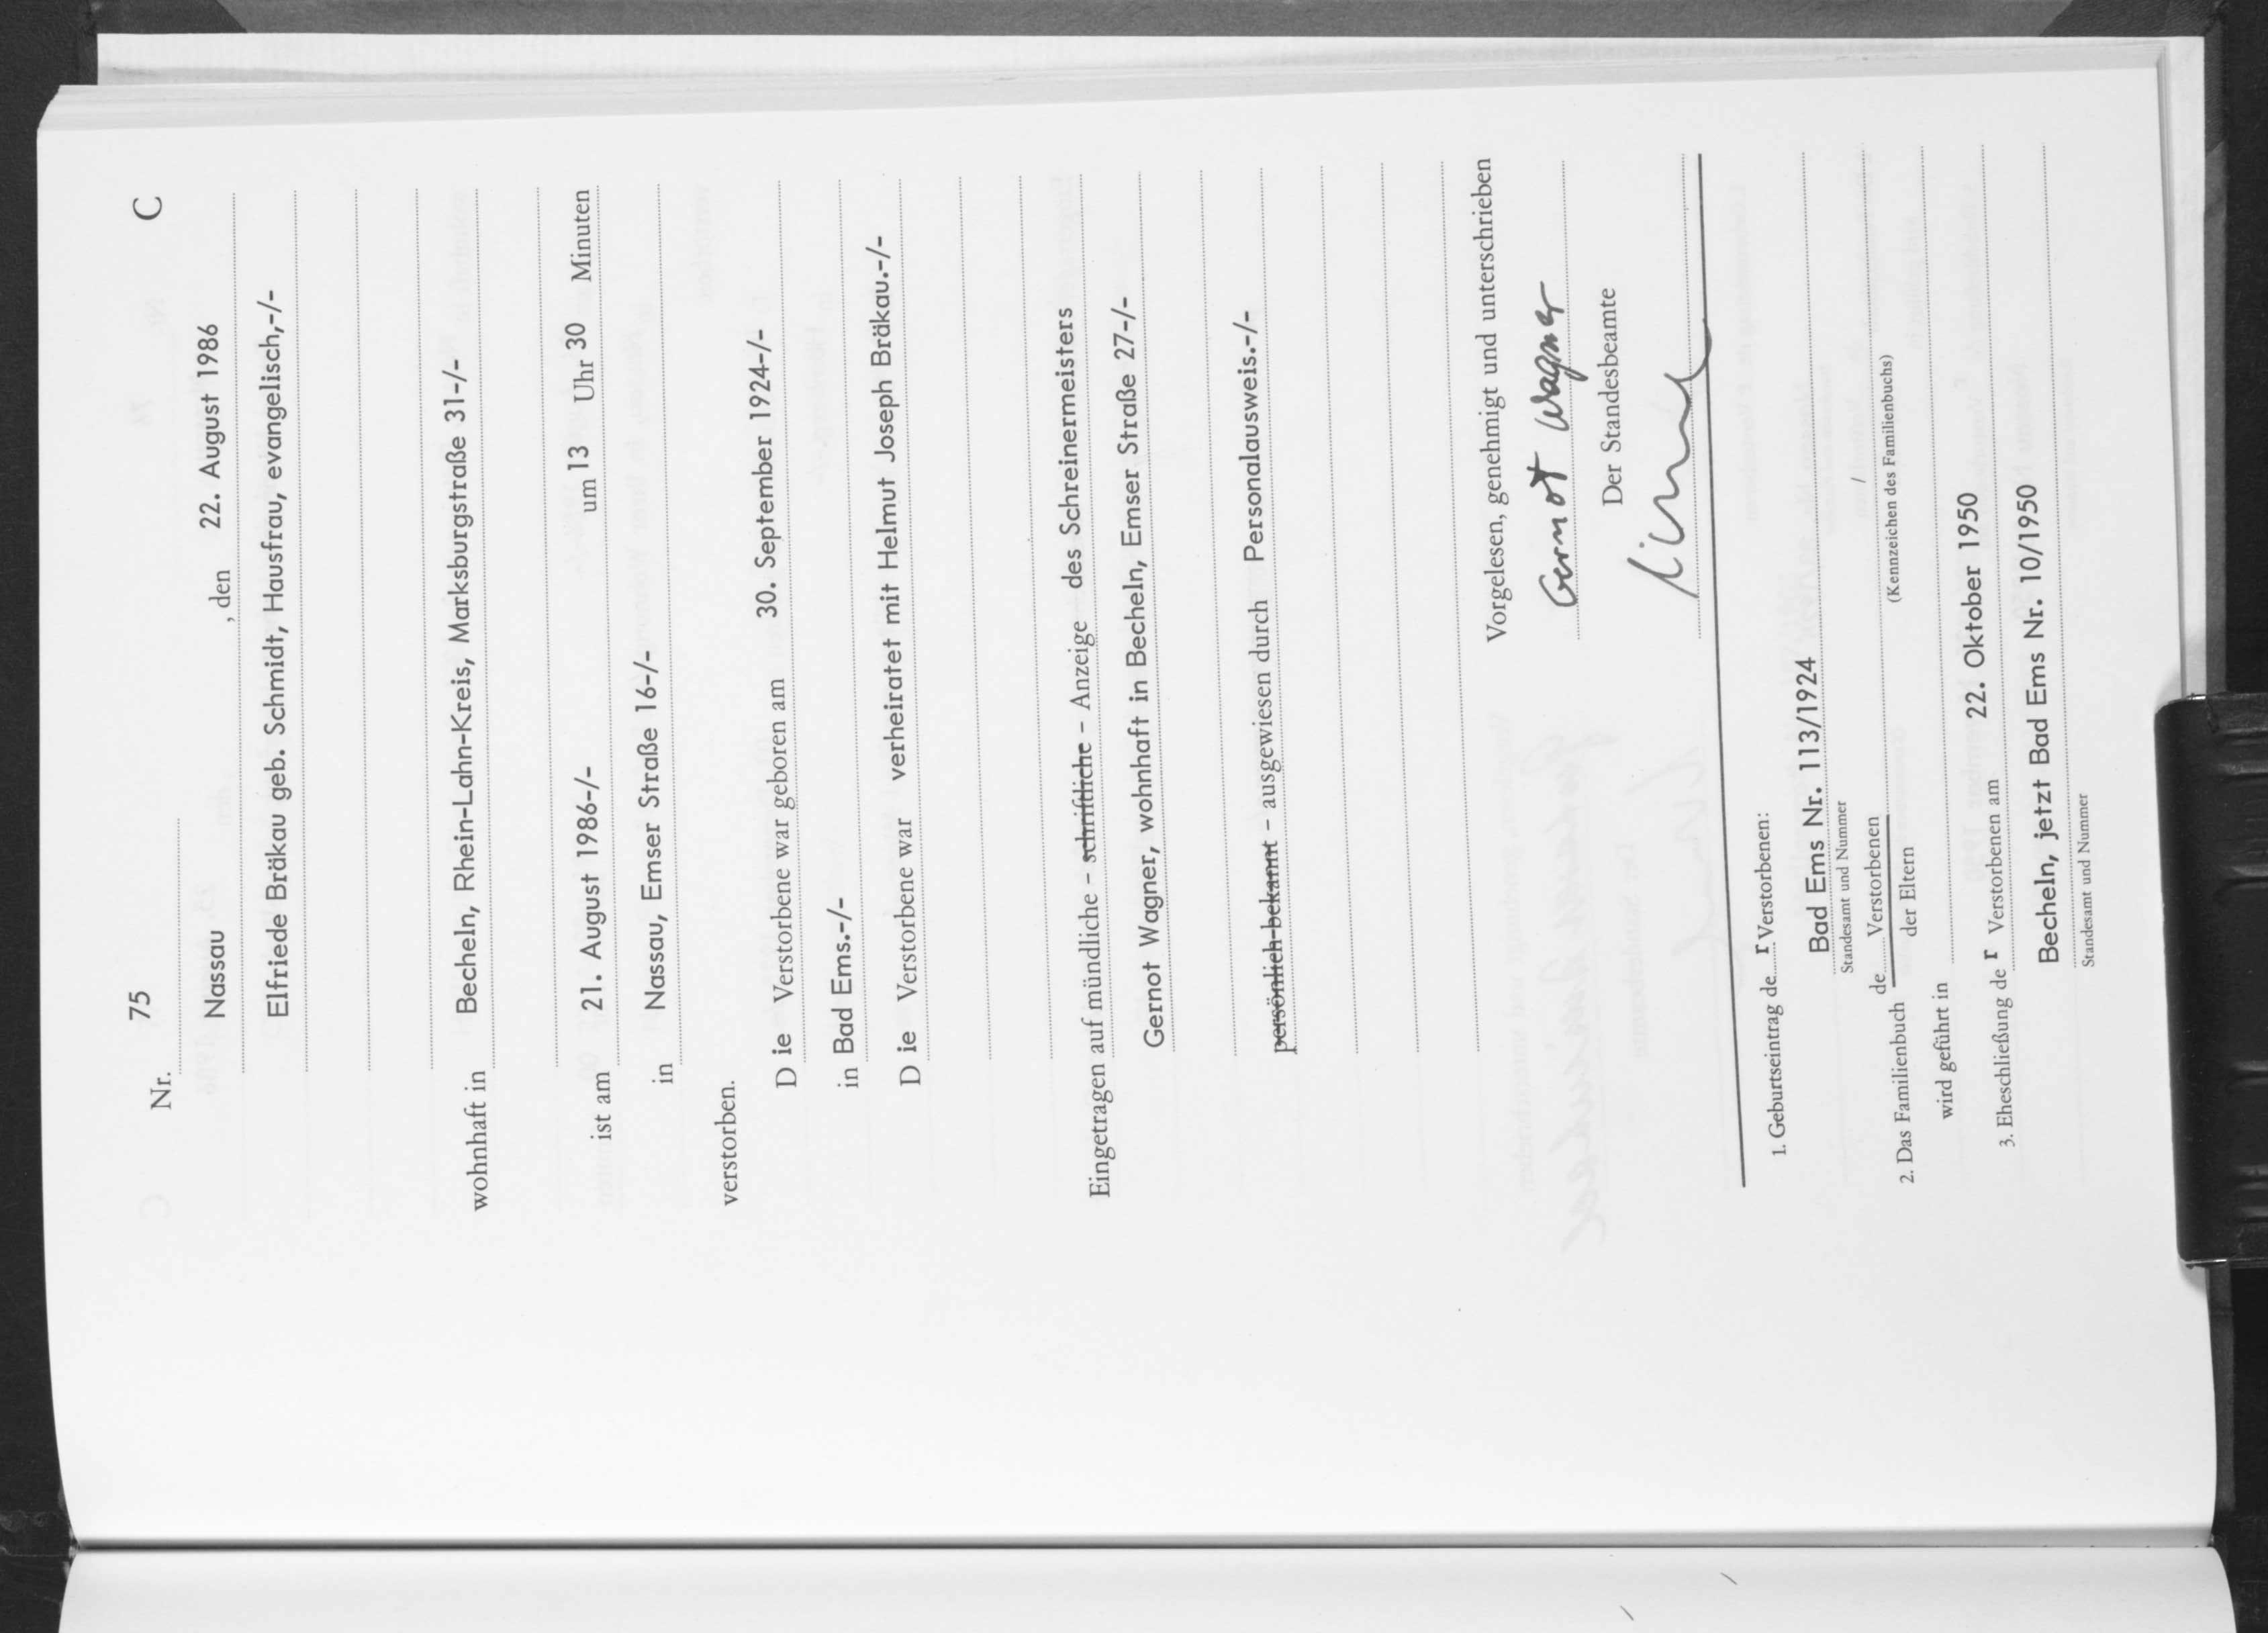 Nr. 75 C
Nassau , den 22. August 1986
Elfriede Bräkau geb. Schmidt, Hausfrau, evangelisch,-/-
wohnhaft in Becheln, Rhein-Lahn-Kreis, Marksburgstraße 31-/-
ist am 21. August 1986-/- um 13 Uhr 30 Minuten
in Nassau, Emser Straße 16-/-
verstorben.
D ie Verstorbene war geboren am 30. September 1924-/-
in Bad Ems.-/-
D ie Verstorbene war verheiratet mit Helmut Joseph Bräkau.-/-
Eingetragen auf mündliche – schriftliche – Anzeige des Schreinermeisters
Gernot Wagner, wohnhaft in Becheln, Emser Straße 27-/-
persönlich bekannt – ausgewiesen durch Personalausweis.-/-
Vorgelesen, genehmigt und unterschrieben
Gernot Wagner
Der Standesbeamte
1. Geburtseintrag de r Verstorbenen:
Bad Ems Nr. 113/1924
Standesamt und Nummer
2. Das Familienbuch de Verstorbenen /
der Eltern (Kennzeichen des Familienbuchs)
wird geführt in
3. Eheschließung de r Verstorbenen am 22. Oktober 1950
Becheln, jetzt Bad Ems Nr. 10/1950
Standesamt und Nummer